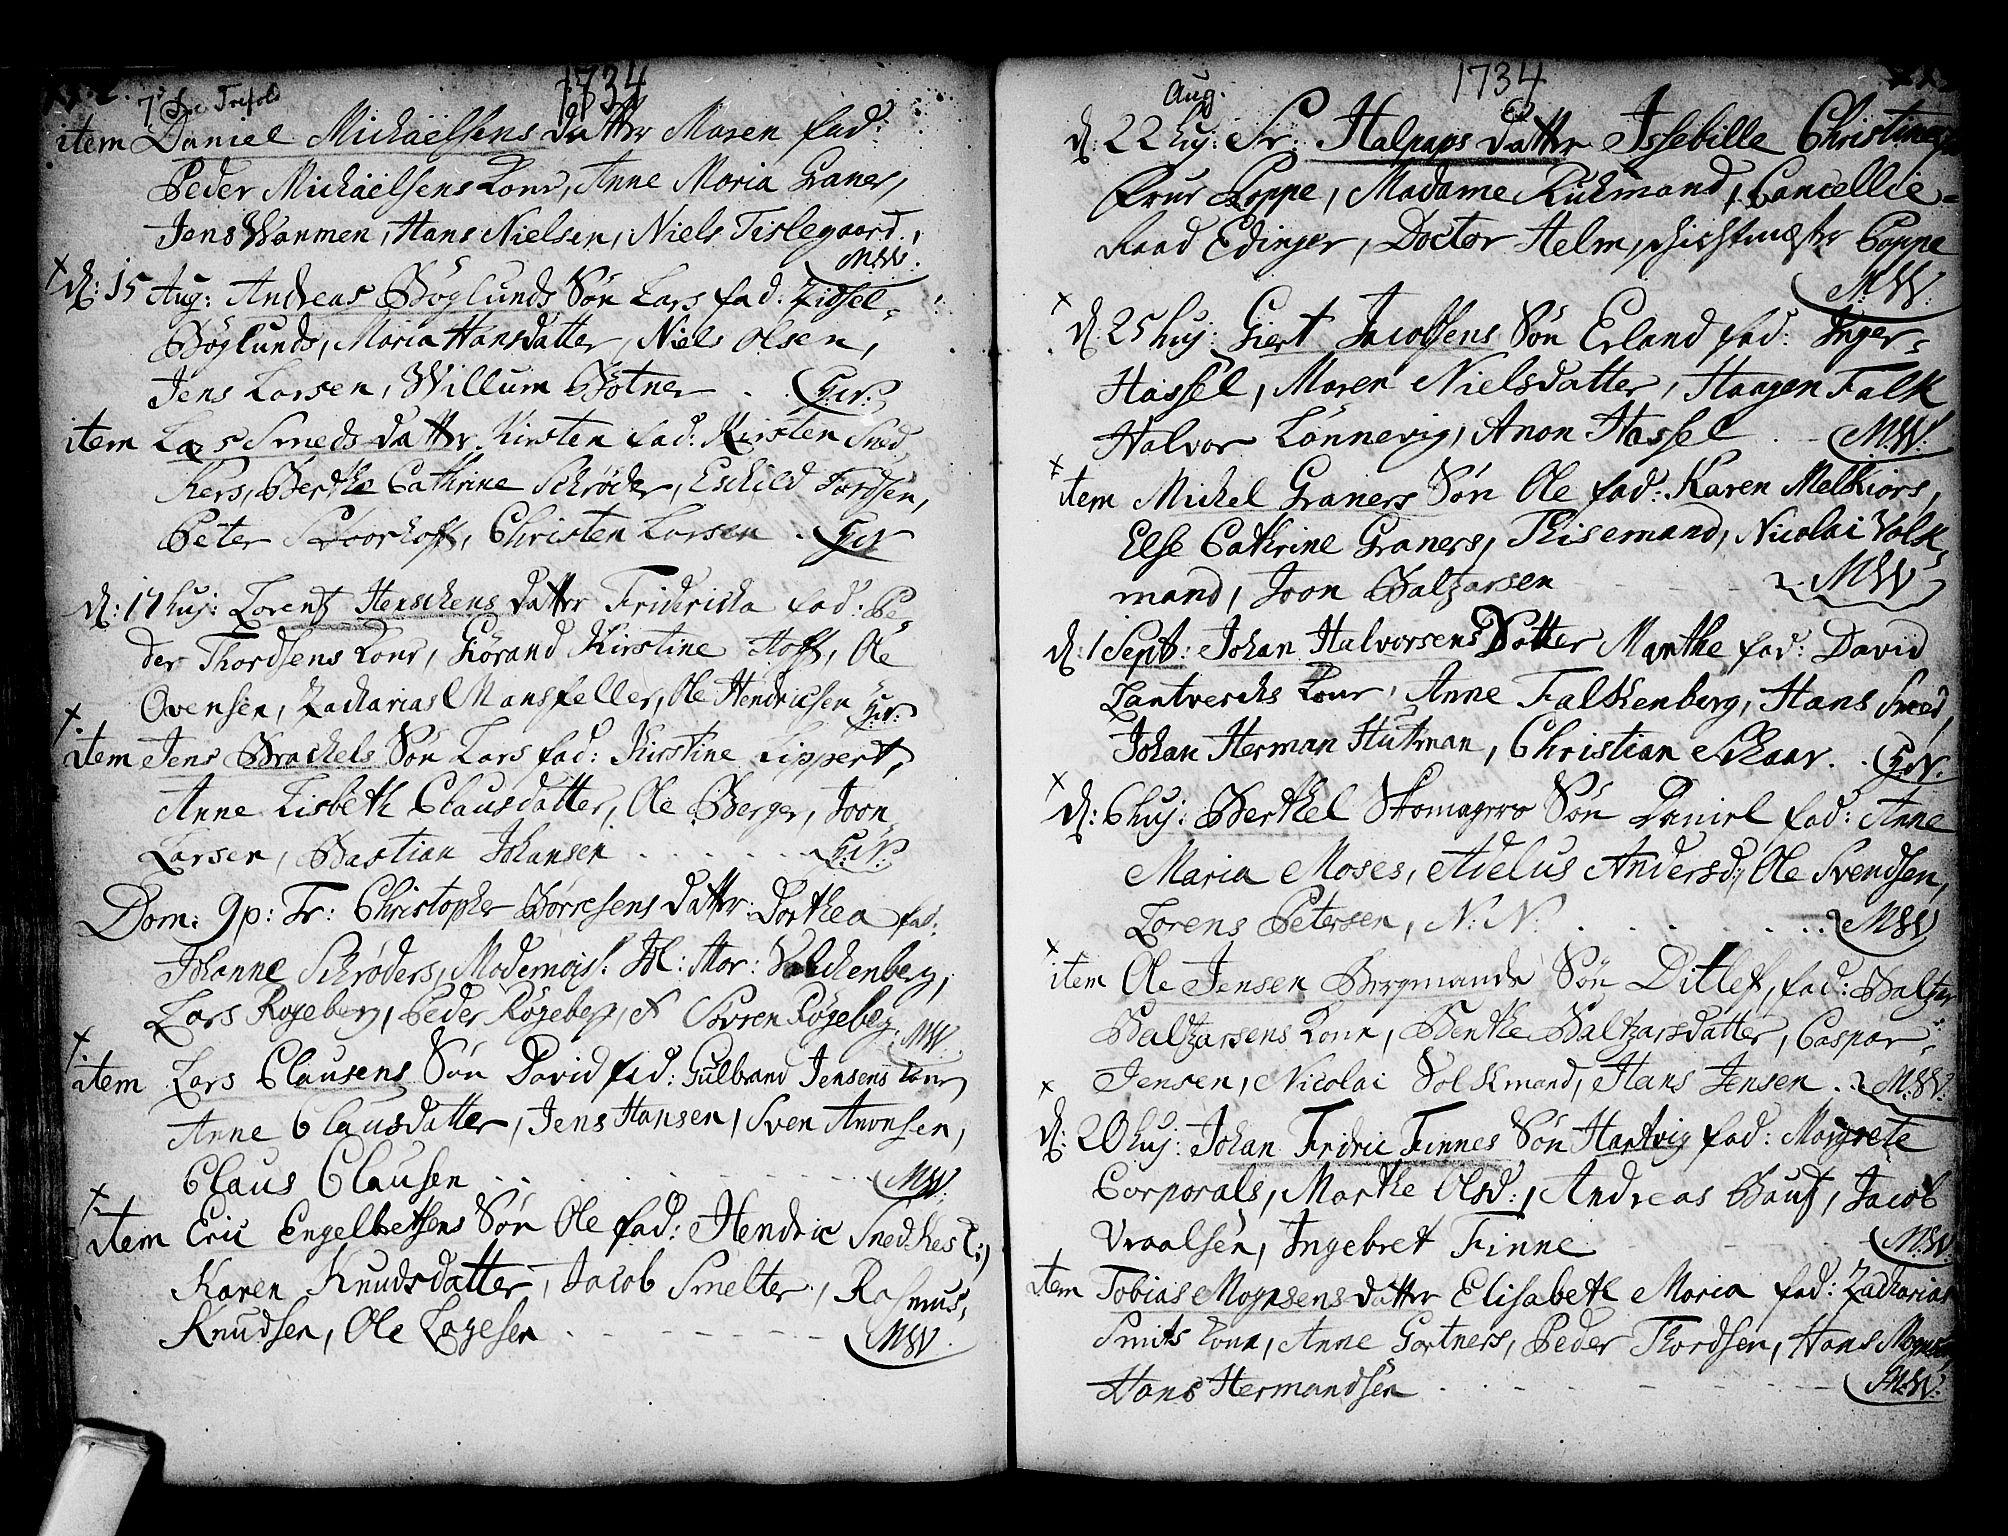 1734
item Daniel Michaelsens datter Maren fad:
Peder Michaelsens Konr, Anne Maria Graners,
Jens Wanmen, Hans Nielsen, Niels Tislegaard,
M:W:
d: 15 Aug: Andreas Böglunds Sön Lars fad: Zidsel
Böglunds, Maria Hansdatter, Niels Olsen,
Jens Larsen, Willum Bötner
item Lars Smeds datter Kirsten fad: Kirsten Sned
Kers, Berthe Cathrine Schrøder, Eskild Tordsen,
Peter Christen Larsen
d: 17 huj: Lorentz Henschens datter Fridericha fad: Pe
der Thordsens Konr, Görand Kirstine Hoff, Ole
Ovensen, Zacharias Mansfeller, Ole Hendricsen
item Jens Brachels Sön Lars fad: Kirstine Lippert,
Anne Lisbeth Clausdatter, Ole Berger, Joon
Larsen, Bastian Johansen
Dom: 9 p: Tr: Christopher Börresens datter Dorthea fad:
Johanne Schrøders, Mademois: Valckenberg,
Lars Rogeberg, Peder Rögeberg, Sören Rögeberg. MW
item Lars Clausens Sön David fad: Gulbrand Jensens Konr
Anne Clausdatter, Jens Hansen, Sven Anonsen,
Claus Clausen MW:
item Eric Engelbretsens Sön Ole fad: Hendric Snedkes
Karen Knudsdatter, Jacob Smelter, Rasmus
Knudsen, Ole Lagesen
MW
Aug. 1734
d: 22 huj: Sr: Halpaps datter Issebille Christine
Frur Poppe, Madame Rickmand, Cancellie
Raad Edinger, Doctor Helm, Poppe
M:W:
d. 25 huj: Giert Jacobsens Sön Erland fad: Inger
Hassel, Maren Nielsdatter, Haagen Falk
Halvor Lönnevig, Anon Hassel M:W:
item Michel Graners Sön Ole fad: Karen Melkiors,
Else Cathrine Graners, Thisemand, Nicolai Volk
mand, Joon Baltzarsen MW
d: 1 Sept: Johan Halvorsens Datter Marthe fad: David
Lantverchs Konr, Anne Falkenberg, Hans Smed,
Johan Herman Hutman, Christian Schaar.
d: 6 huj: Berthel Skomagers Sön Daniel fad: Anne
Maria Moses, Adelus Andersd:, Ole Svendsen,
Lorens Petersen, N: N: MW
item Ole Jensen Bergmands Sön Ditlef, fad: Baltzer
Baltzarsens Konr, Benthe Baltzarsdatter, Caspar
Jensen, Nicolai Volkmand, Hans Jensen. M:W:
d: 20 huj: Johan Fridric Finnes Sön Hartvig fad: Margrete
Corporals, Marthe Olsd:, Andreas Bautz, Jacob
Vraalsen, Ingebret Finne M:W:
item Tobias Mognsens datter Elisabeth Maria fad: Zacharias
Smits Konr, Anne Gartners, Peder Thordsen, Hans
Hans Hermandsen M:W: